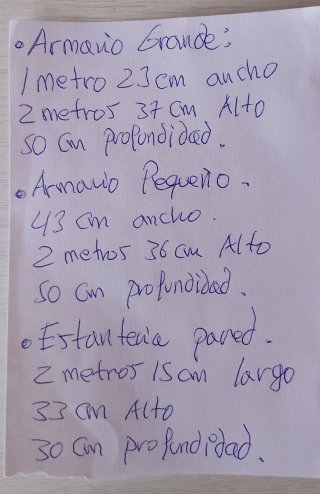 • Armario Grande:
1 metro 23 cm ancho
2 metros 37 cm Alto
50 cm profundidad.
• Armario Pequeño.
43 cm ancho.
2 metros 36 cm Alto
50 cm profundidad.
• Estanteria pared.
2 metros 15 cm largo
33 cm Alto
30 cm profundidad.